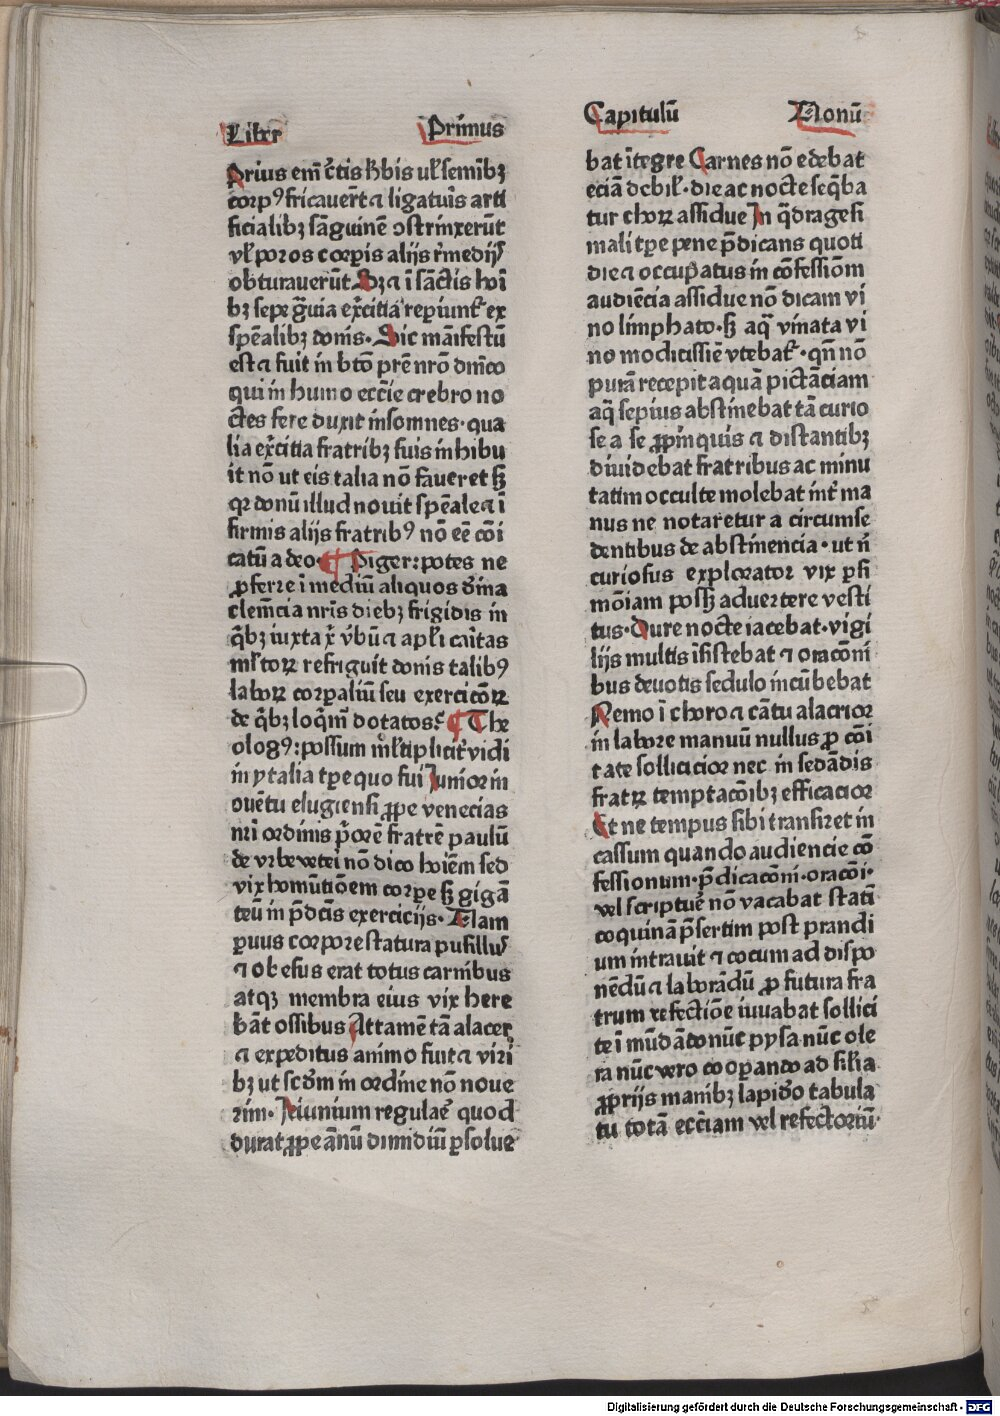 Liber Primus
Prius em̄ c̄tis h̄bis ul̓ semībꝫ
corpꝰ fricauer̄t ⁊ ligatur̄is arti
ficialibꝫ sāguinē ↄstrinxerūt
vl̓ poros corꝑis alijs r̄medijs
obturauerūt Sꝫ ⁊ ī sāctis hoī
bꝫ sepe gᷓuia exc̄itia reꝑiunt᷑ ex
spēalibꝫ donis· Sic māifestū
est ⁊ fuit in btō pr̄e nr̄o dn̄ico
qui in humo ecc̄ie crebro no
ctes fere duxit insomnes· qua
lia exc̄itia fratribꝫ suis inhibu
it nō ut eis talia nō faueret sꝫ
qꝛ donū illud nouit spēale ⁊ ī
firmis alijs fratribꝰ nō eē cōi
catū a deo· ¶ Piger: potes ne
ꝓferre ī mediū aliquos dīna
clem̄cia nr̄is diebꝫ frigidis in
qͥbꝫ iuxta xͥ v̄bū ⁊ apl̓i caritas
ml̓toꝝ refriguit donis talibꝰ
laboꝝ corꝑaliū seu exercicōꝝ
de qͥbꝫ loqͥm̄ dotatos? ¶ The
ologꝰ: possum ml̓tiplicit᷑ vidi
in ytalia tꝑe quo fui Iunior in
ↄuētu elugiensi ꝓpe venecias
nr̄i ordinis pͥorē fratrē paulū
de vrbe vetei nō dico hoīem sed
vix homūtiōem corꝑe sꝫ gigā
teū in p̄dc̄is exercicijs· Nam
ꝑuus corpore statura pusillus
⁊ obesus erat totus carnibus
atqꝫ membra eius vix here
bāt ossibus Attamē tā alacer
⁊ expeditus animo fuit ⁊ viri
bꝫ ut scd̄m in ordine nō noue
rim· Ieiunium regulae᷑ quod
durat ꝓpe ānū dimidiū ꝑsolue
Capitulū Nonū
bat ītegre Carnes nō edebat
eciā debil̓· die ac nocte seq̄ba
tur choꝝ assidue In qͣdragesi
mali tꝑe pene p̄dicans quoti
die ⁊ occupatus in cōfessiōm
audiēcia assidue nō dicam vi
no limphato· sꝫ aqͣ vinata vi
no modicissiē vtebat᷑· qn̄ nō
purā recepit aquā pictāciam
aqͣ sepius abstinebat tā curio
se a se ꝓpinquis ⁊ distantibꝫ
diuidebat fratribus ac minu
tatim occulte molebat int᷑ ma
nus ne notaretur a circumse
dentibus de abstinencia· ut n̄
curiosus explorator vix ꝑsi
mōiam possꝫ aduertere vesti
tus· Dure nocte iacebat· vigi
lijs multis īsistebat ⁊ oracōni
bus deuotis sedulo incūbebat
Nemo ī choro ⁊ cātu alacrior
in labore manuū nullus ꝓ cōi
tate sollicicior nec in sedādis
fratꝝ temptacōibꝫ efficacior
Et ne tempus sibi transiret in
cassum quando audiencie cō
fessionum· p̄dicacōni· oracōi·
vel scripture᷑ nō vacabat statī
coquinā p̄sertim post prandi
um intrauit ⁊ cocum ad dispo
nēdū ⁊ laborādū ꝓ futura fra
trum refectiōe iuuabat sollici
te ī mūdādo nūc pysa nūc ole
ra nūc vero cooꝑando ad silīa
ꝓprijs manibꝫ lapideo tabula
tu totā ecc̄iam vel refectoriū·
Digitalisierung gefördert durch die Deutsche Forschungsgemeinschaft - DFG